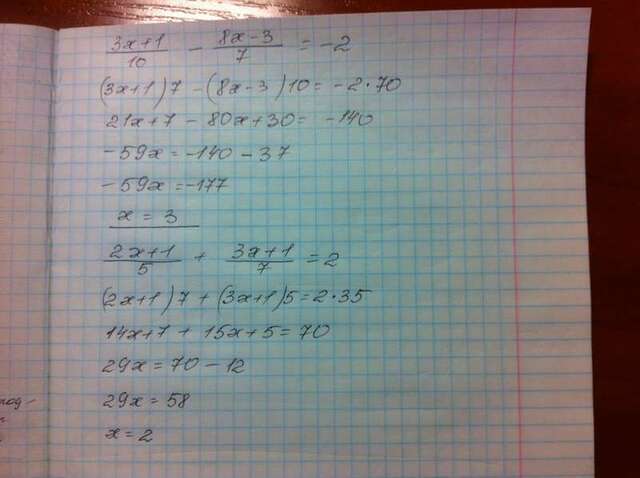 (3x+1)/10 - (8x-3)/7 = -2
(3x+1)7 - (8x-3)10 = -2·70
21x+7 - 80x+30 = -140
-59x = -140 - 37
-59x = -177
x = 3
(2x+1)/5 + (3x+1)/7 = 2
(2x+1)7 + (3x+1)5 = 2·35
14x+7 + 15x+5 = 70
29x = 70 - 12
29x = 58
x = 2